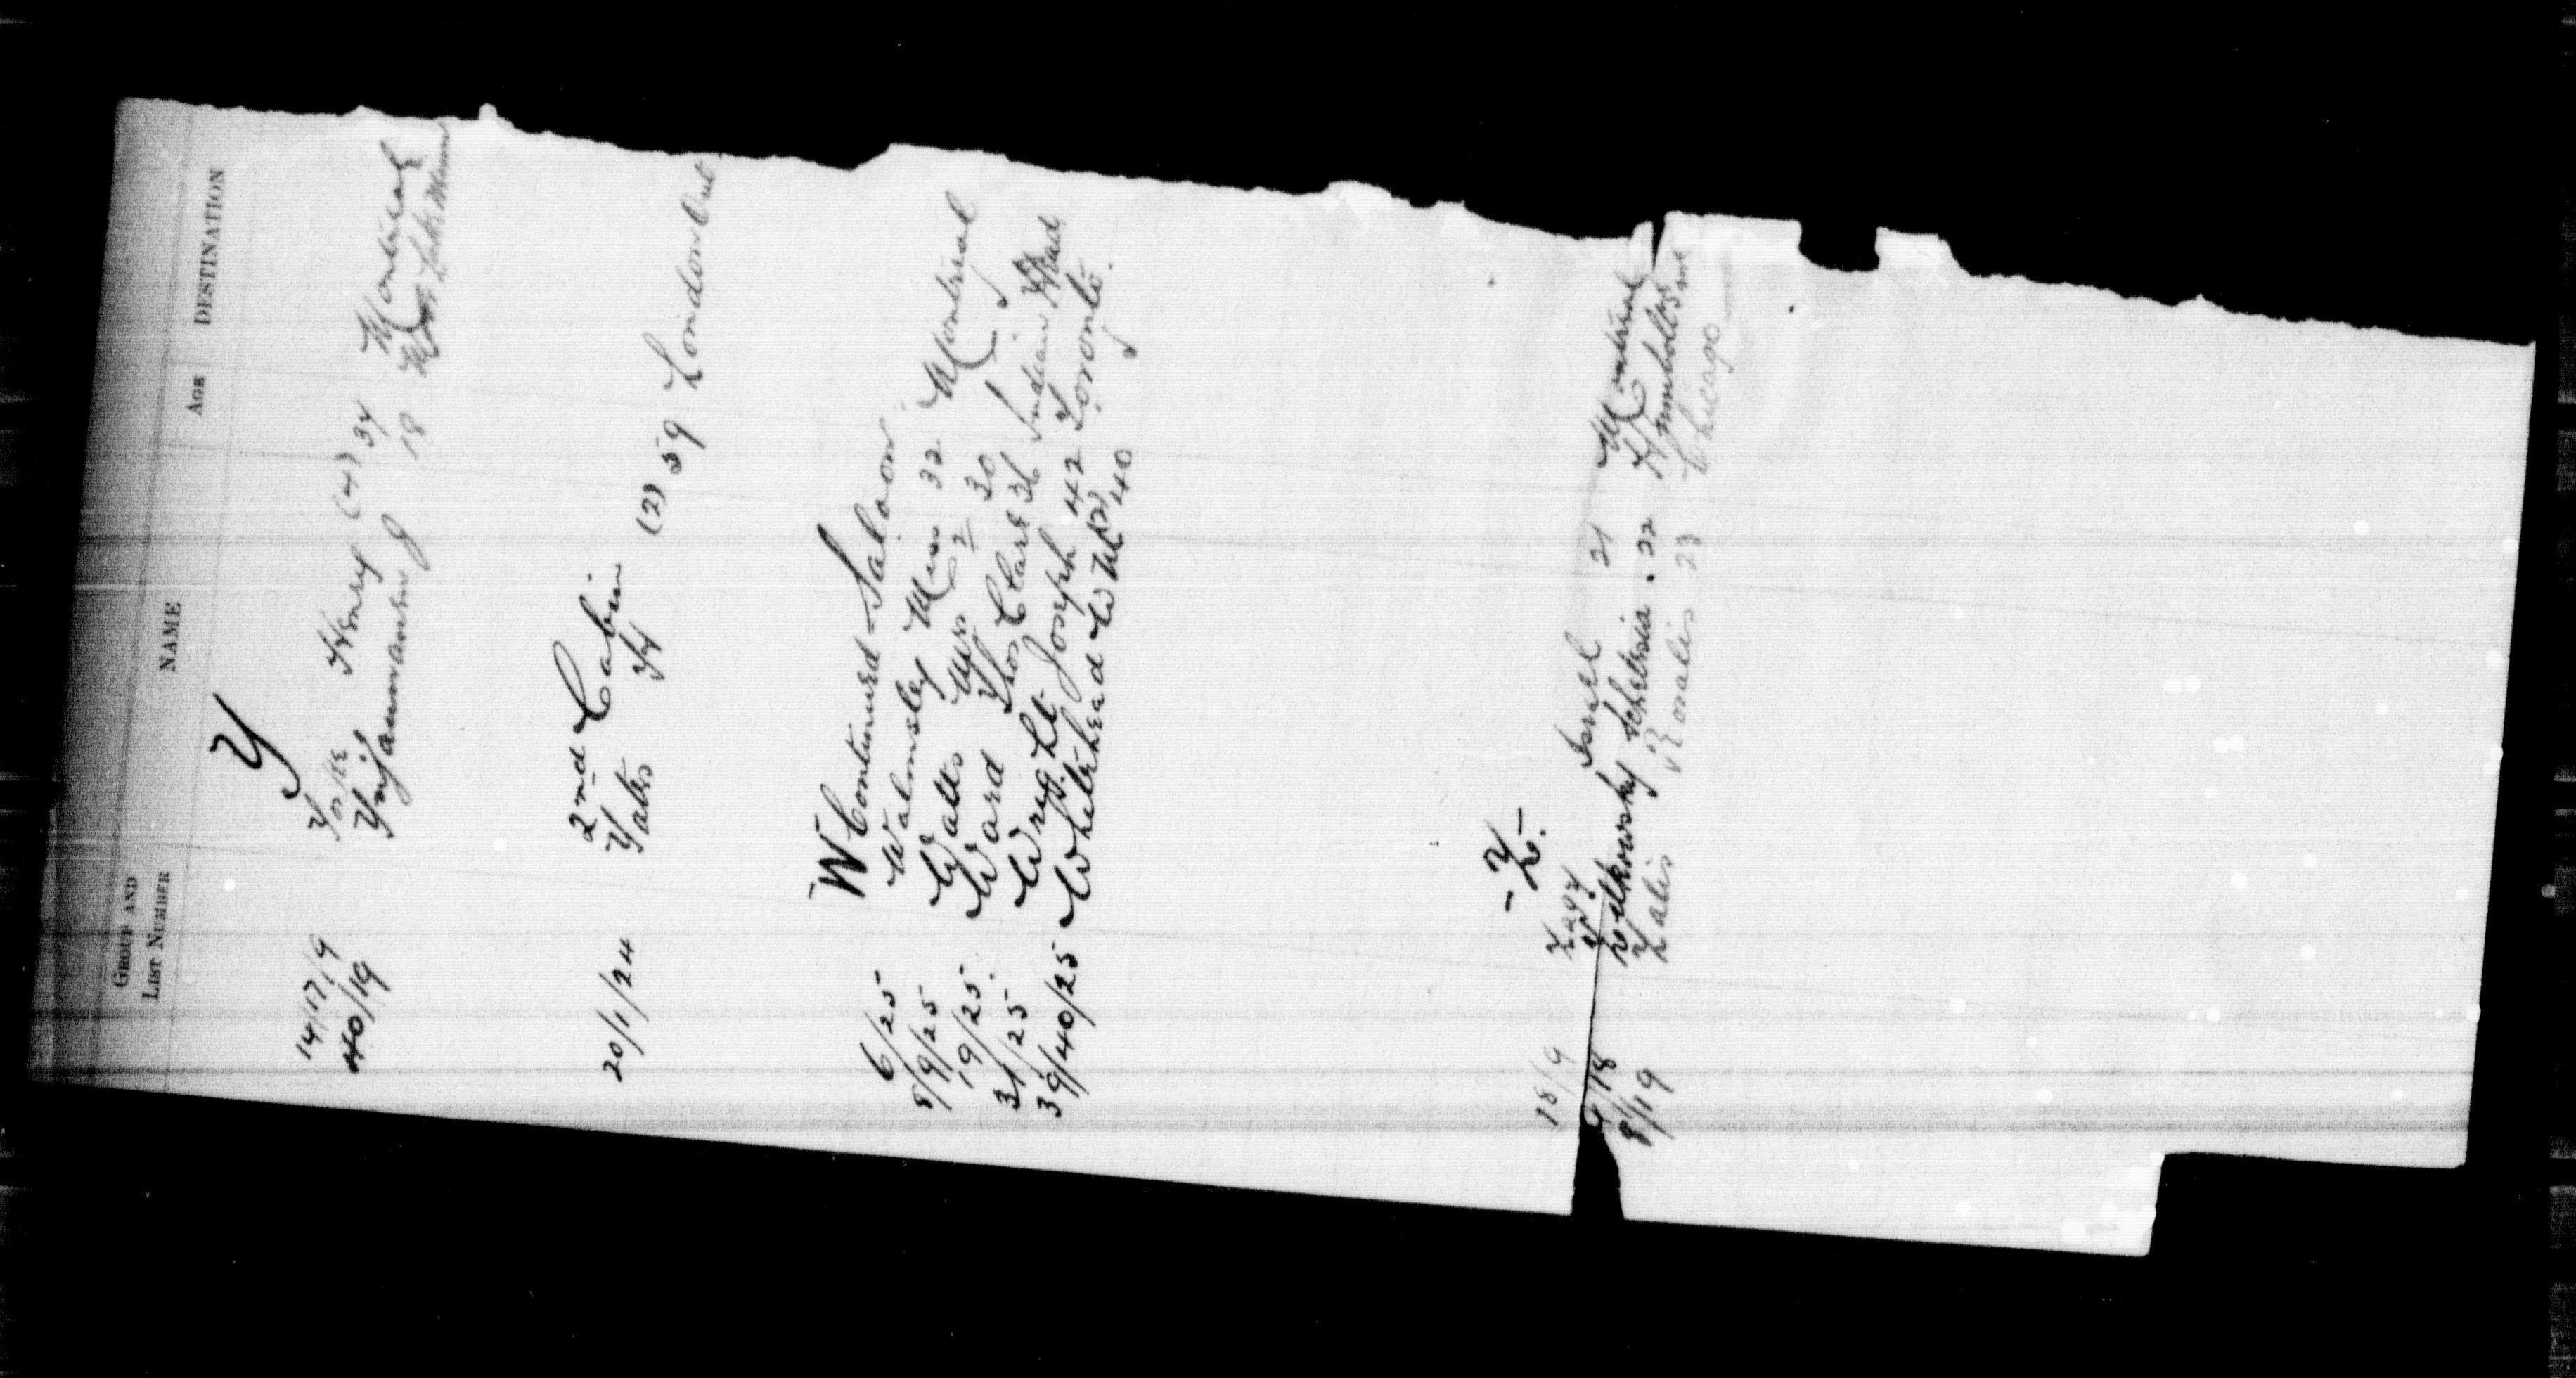 GROUP AND LIST NUMBER NAME AGE DESTINATION
Y
14/17/9 Yorke Henry (4) 34 Montreal
40/19 J 18
2nd Cabin
20/1/24 Yates H (2) 59 London Ont
W Continued - Saloon
6/25 Walmsley Miss 32 Montreal
8/9/25 Watts Mrs 2 30
19/25 Ward Thos Clark 36 Indian Head
31/25 Wright Joseph 42 Toronto.
39/40/25 Whitehead W M (2) 40
- Z. -
18/9 Zagy Israel 21 Montreal
/18 22 Humboldt
8/19 Zalis Rosalis 23 Chicago